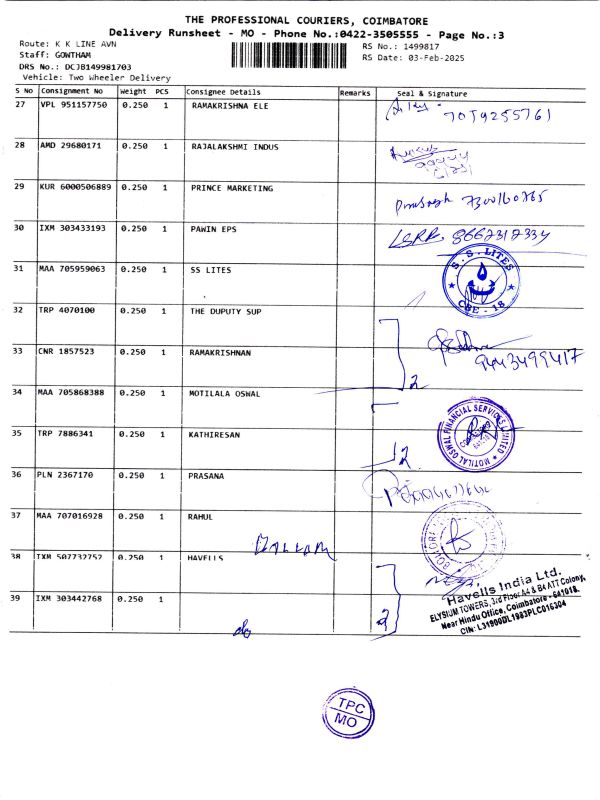 THE PROFESSIONAL COURIERS, COIMBATORE
Delivery Runsheet - MO - Phone No.:0422-3505555 - Page No.:3
Route: K K LINE AVN
RS No.: 1499817
Staff: GOWTHAM
RS Date: 03-Feb-2025
DRS No.: DCJB149981703
Vehicle: Two Wheeler Delivery
S No Consignment No Weight PCS Consignee Details Remarks Seal & Signature
27 VPL 951157750 0.250 1 RAMAKRISHNA ELE 7019255761
28 AMD 29680171 0.250 1 RAJALAKSHMI INDUS
29 KUR 6000506889 0.250 1 PRINCE MARKETING
30 IXM 303433193 0.250 1 PAWIN EPS 8667317334
31 MAA 705959063 0.250 1 SS LITES
S. S. LITES
CBE - 18
32 TRP 4070100 0.250 1 THE DUPUTY SUP
33 CNR 1857523 0.250 1 RAMAKRISHNAN 9443499417
2
34 MAA 705868388 0.250 1 MOTILALA OSWAL
MOTILAL OSWAL FINANCIAL SERVICES LIMITED
35 TRP 7886341 0.250 1 KATHIRESAN
2
36 PLN 2367170 0.250 1 PRASANA
37 MAA 707016928 0.250 1 RAHUL
38 IXM 507732752 0.250 1 HAVELLS
Havells India Ltd.
ELYSIUM TOWERS, 3rd Floor A4 & B4 ATT Colony,
Near Hindu Office, Coimbatore - 641018.
CIN: L31900DL1983PLC016304
39 IXM 303442768 0.250 1
2
do
TPC
MO